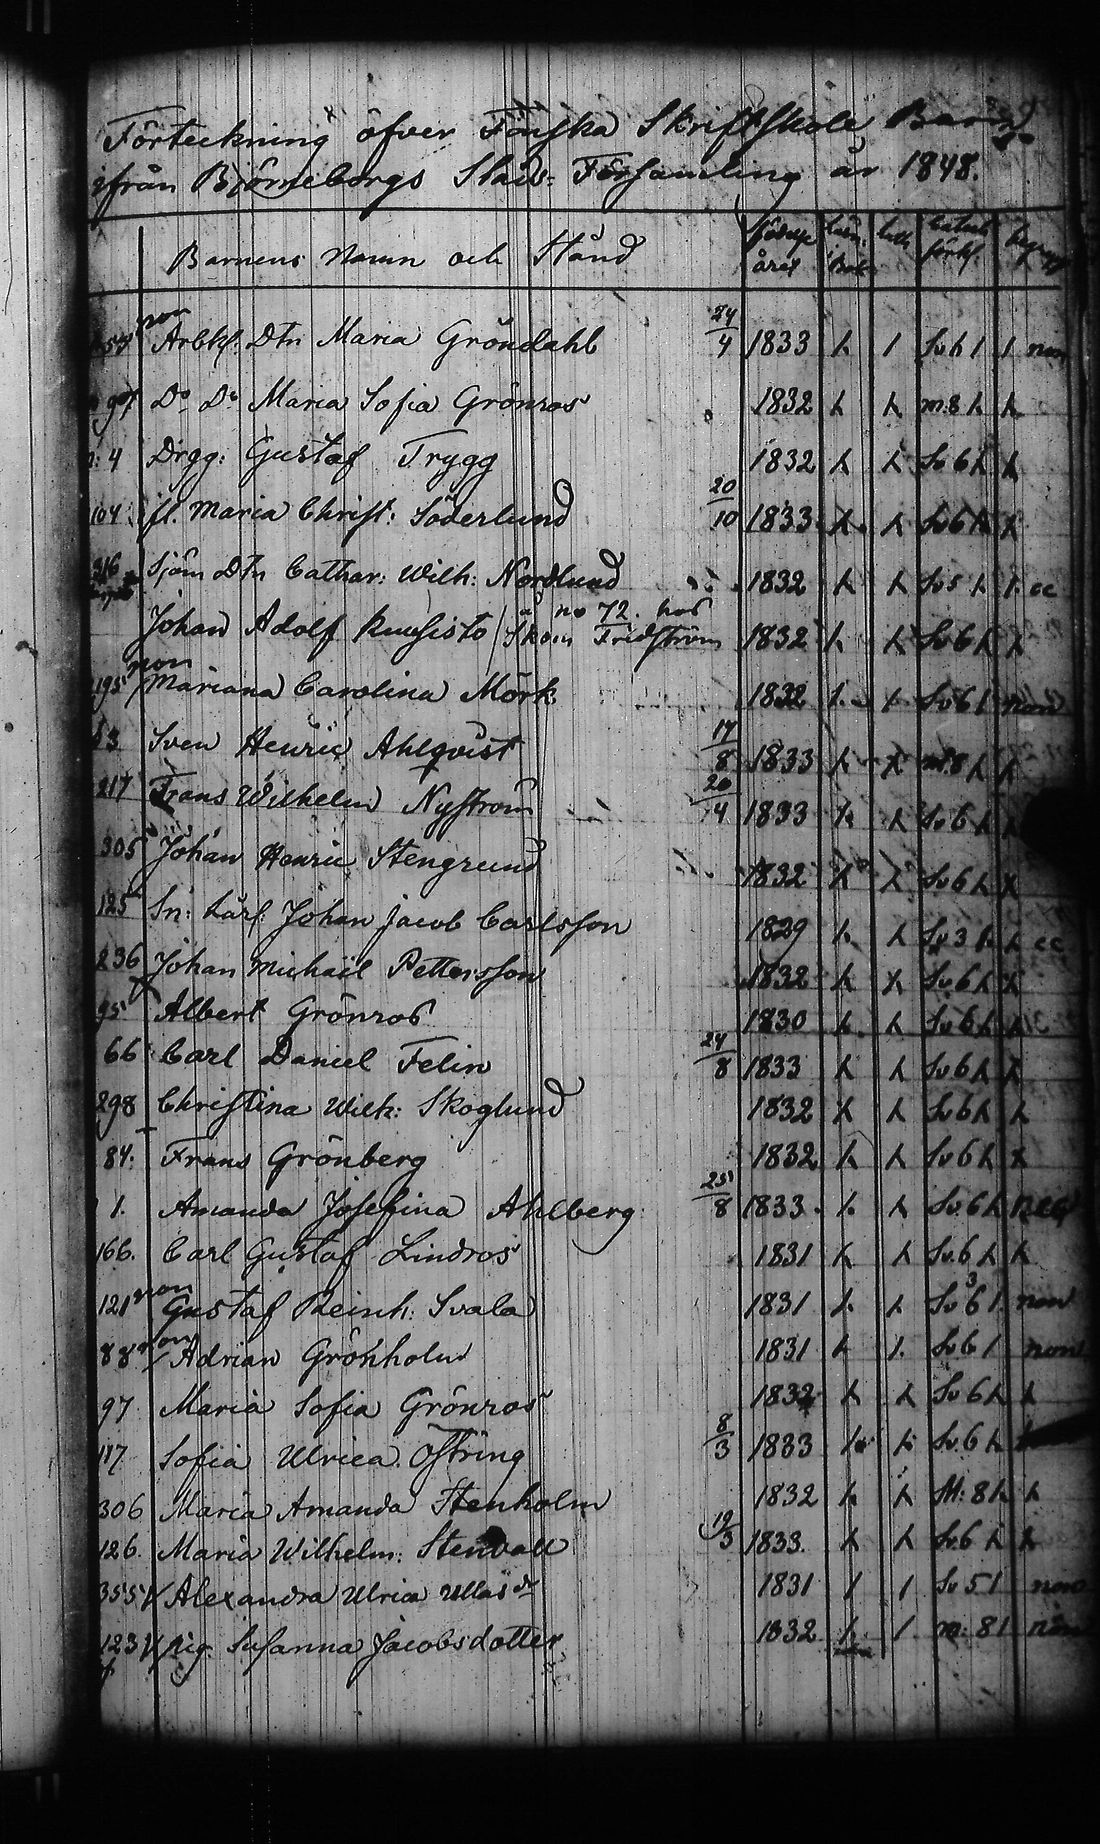 Förteckning öfver Finska Skriftskole Barn
ifrån Björneborgs Stads Församling år 1848.
Barnens Namn och Stånd födelse året
non Arbkl. Dtr Maria Gröndahl 24/4 1833 1 1 Sv 6 1 1 non
97 Do Do Maria Sofia Grönros 1832 m: 8
4 Drgg: Gustaf Trygg 1832 Sv 6
104 fl. Maria Christ: Söderlund 20/10 1833 Sv 6
316 Sjöm Dtr Cathar: Wilh: Nordlund 1832 Sv 5 cc
Johan Adolf å no 72. hos Skom Fridström 1832 Sv 6
195 non Mariana Carolina Mörk 1832 1. 1. Sv 6 1 non
53 Sven Henric Ahlqvist 17/8 1833 m: 8
217 Frans Wilhelm Nyström 20/4 1833 Sv 6
305 Johan Henric Stengrund 1832 Sv 6
125 Sn: Lärl: Johan Jacob Carlsson 1829 Sv 3 cc
236 Johan Michaël Pettersson 1832 Sv 6
95 Albert Grönros 1830 Sv 6
66 Carl Daniel Felin 24/8 1833 Sv 6
298 Christina Wilh: Skoglund 1832 Sv 6
84: Frans Grönberg 1832 Sv 6
1. Amanda Josefina Ahlberg 25/8 1833. Sv. 6
166. Carl Gustaf Lindros 1831 Sv. 6
121 non Gustaf Reinh: Svala 1831 Sv 6 3 1. non
88 non Adrian Grönholm 1831 1. Sv 6 1 non
97 Maria Sofia Grönros 1832 Sv 6
117 Sofia Ulrica Östring 8/3 1833 Sv. 6
306 Maria Amanda Stenholm 1832 M: 8
126. Maria Wilhelm: Stenvall 19/3 1833. Sv. 6
355 Alexandra Ulrica Ullas dr 1831 1 1 Sv 5 1 non
123 pig. Susanna Jacobsdotter 1832 1. 1. m: 8 1 non